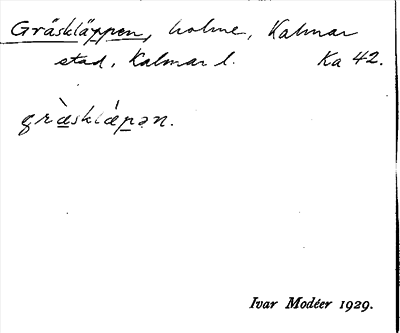 Gräskläppen, holme, Kalmar
stad, Kalmar l. Ka 42.
grὰsklæ̀pən.
Ivar Modéer 1929.